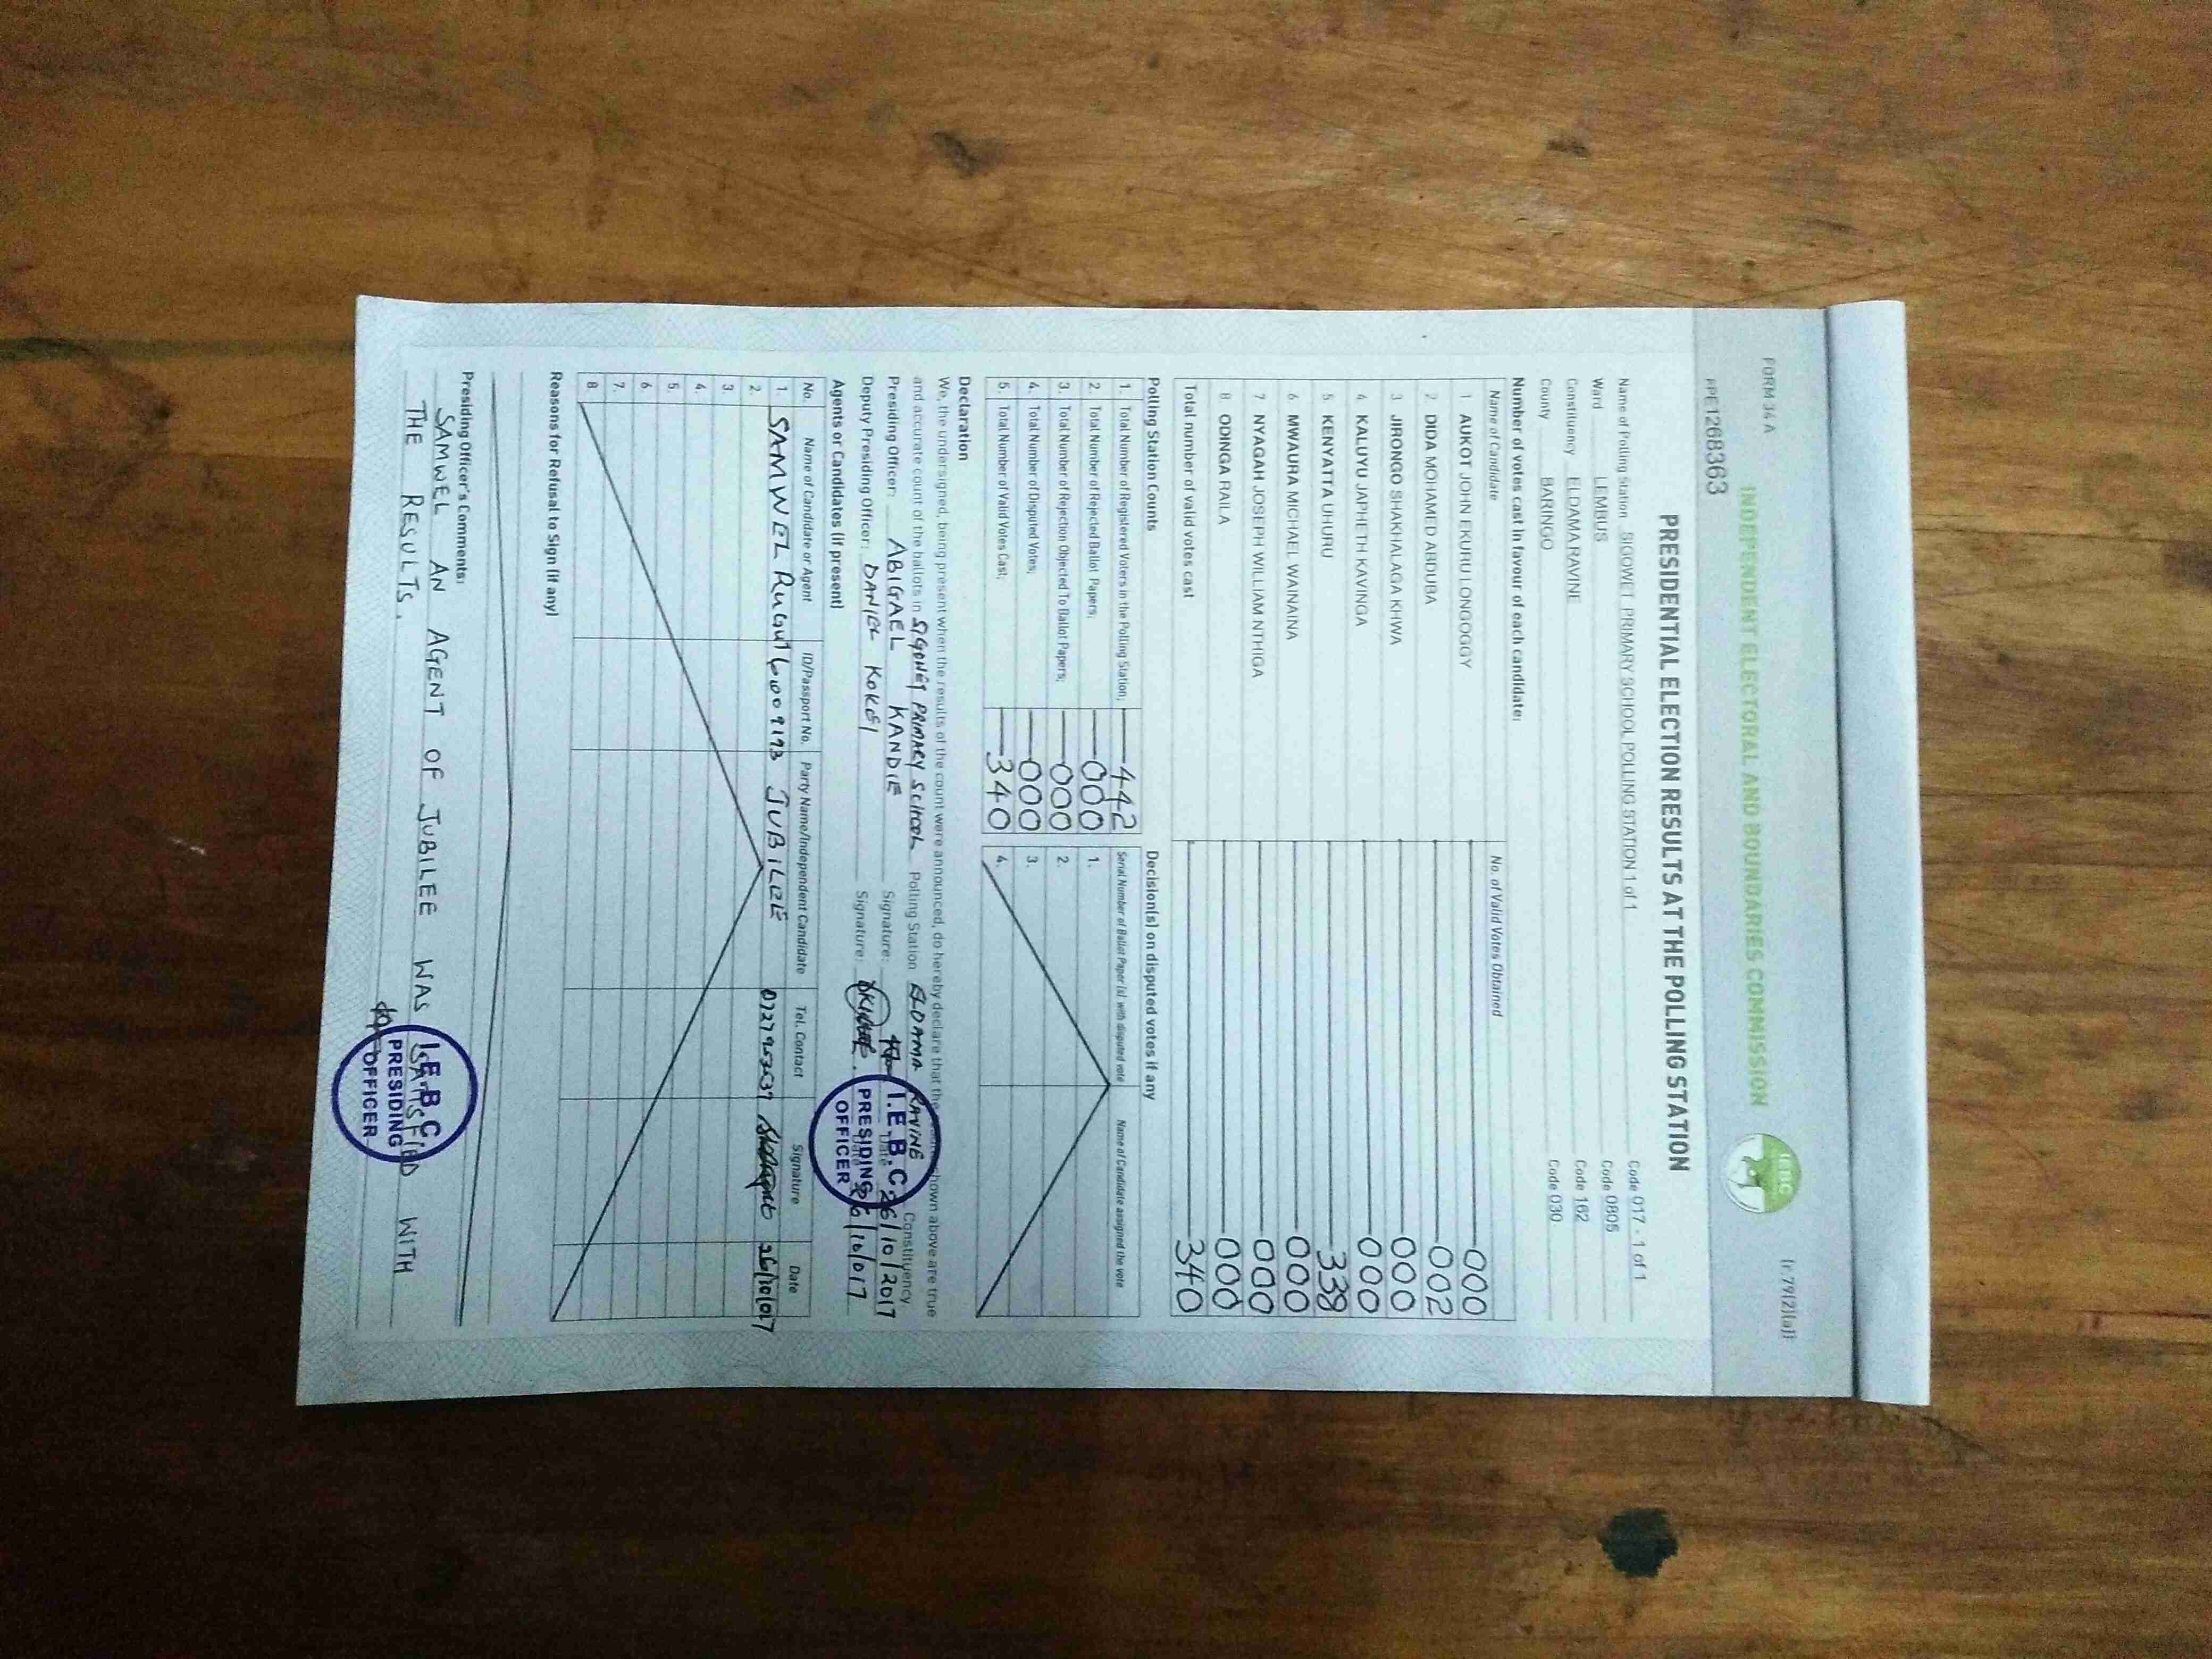 FORM 34 A
(r.79(2)(a))
INDEPENDENT ELECTORAL AND BOUNDARIES COMMISSION
IEBC
PPE1268363
PRESIDENTIAL ELECTION RESULTS AT THE POLLING STATION
Name of Polling Station SIGOWET PRIMARY SCHOOL POLLING STATION 1 of 1 Code 017 - 1 of 1
Ward LEMBUS Code 0805
Constituency ELDAMA RAVINE Code 162
County BARINGO Code 030
Number of votes cast in favour of each candidate:
Name of Candidate No. of Valid Votes Obtained
1 AUKOT JOHN EKURU LONGOGGY 000
2 DIDA MOHAMED ABDUBA 002
3 JIRONGO SHAKHALAGA KHWA 000
4 KALUYU JAPHETH KAVINGA 000
5 KENYATTA UHURU 338
6 MWAURA MICHAEL WAINAINA 000
7 NYAGAH JOSEPH WILLIAM NTHIGA 000
8 ODINGA RAILA 000
Total number of valid votes cast 340
Polling Station Counts
1. Total Number of Registered Voters in the Polling Station; 442
2. Total Number of Rejected Ballot Papers; 000
3. Total Number of Rejection Objected To Ballot Papers; 000
4. Total Number of Disputed Votes; 000
5. Total Number of Valid Votes Cast; 340
Decision(s) on disputed votes if any
Serial Number of Ballot Paper(s) with disputed vote Name of Candidate assigned the vote
1.
2.
3.
4.
Declaration
We, the undersigned, being present when the results of the count were announced, do hereby declare that the shown above are true
and accurate count of the ballots in SIGOWET PRIMARY SCHOOL Polling Station ELDAMA RAVINE Constituency
Presiding Officer: ABIGAEL KANDIE Signature: Date: 26/10/2017
Deputy Presiding Officer: DANIEL KOKEI Signature: 26/10/017
I.E.B.C
PRESIDING
OFFICER
Agents or Candidates (if present)
No. Name of Candidate or Agent ID/Passport No. Party Name/Independent Candidate Tel. Contact Signature Date
1. SAMWEL JUBILEE 26/10/017
2.
3.
4.
5.
6
7.
8.
Reasons for Refusal to Sign (if any)
Presiding Officer's Comments:
SAMWEL AN AGENT OF JUBILEE WAS SATISFIED WITH
THE RESULTS.
I.E.B.C
PRESIDING
OFFICER